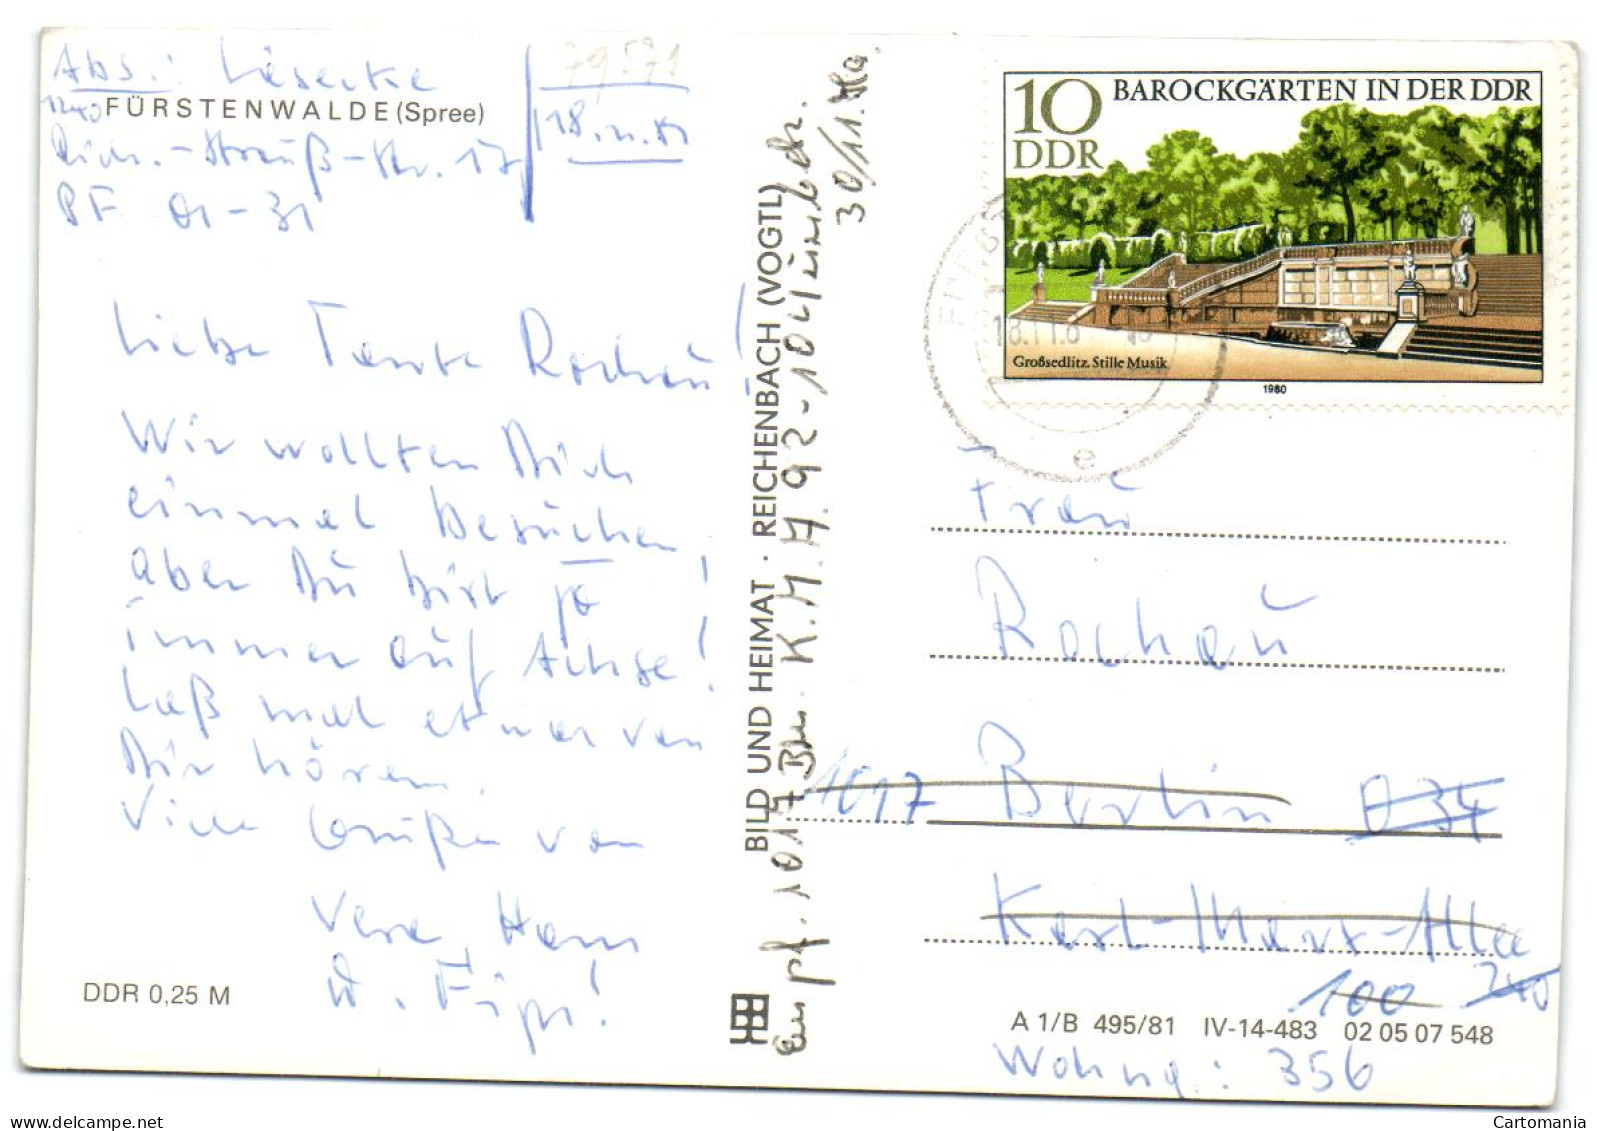 79571
Abs.: Liesecke
1240 FÜRSTENWALDE (Spree)
18.11.81
Rich.-Strauß-Str. 17
PF 01-31
Liebe Tante Rochau!
Wir wollten Dich
einmal besuchen,
aber Du bist ja
immer auf Achse!
Laß mal etwas von
Dir hören.
Viele Grüße von
Vera, Hans
u. Fips!
DDR 0,25 M
BILD UND HEIMAT · REICHENBACH (VOGTL)
Empf. 1017 Bln. K.M.A. 92-104
30/11.
10
DDR
BAROCKGÄRTEN IN DER DDR
Großsedlitz. Stille Musik
1980
18.11.8
e
Frau
Rochau
1017 Berlin O 34
Karl-Marx-Allee
100 240
A 1/B 495/81 IV-14-483 02 05 07 548
Wohng.: 356
Cartomania